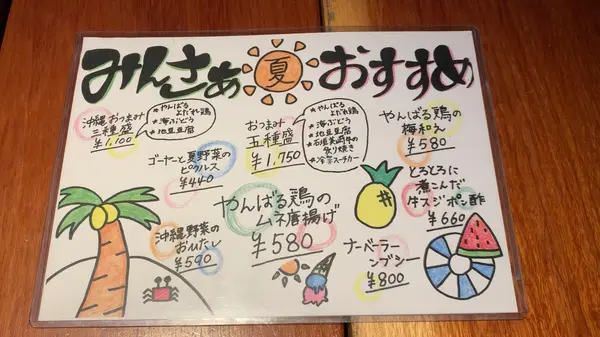 みんさぁ 夏 おすすめ
沖縄おつまみ
三種盛
¥1,100
★やんばる
よだれ鶏
★海ぶどう
★地豆豆腐
おつまみ
五種盛
¥1,750
★やんばる
よだれ鶏
★海ぶどう
★地豆豆腐
★石垣美崎牛の
炙り焼き
★冷製スーチカー
やんばる鶏の
梅和え
¥580
ゴーヤーと夏野菜の
ピクルス
¥440
とろとろに
煮こんだ
牛スジポン酢
¥660
沖縄野菜の
おひたし
¥590
やんばる鶏の
ムネ唐揚げ
¥580
ナーベーラー
ンブシー
¥800